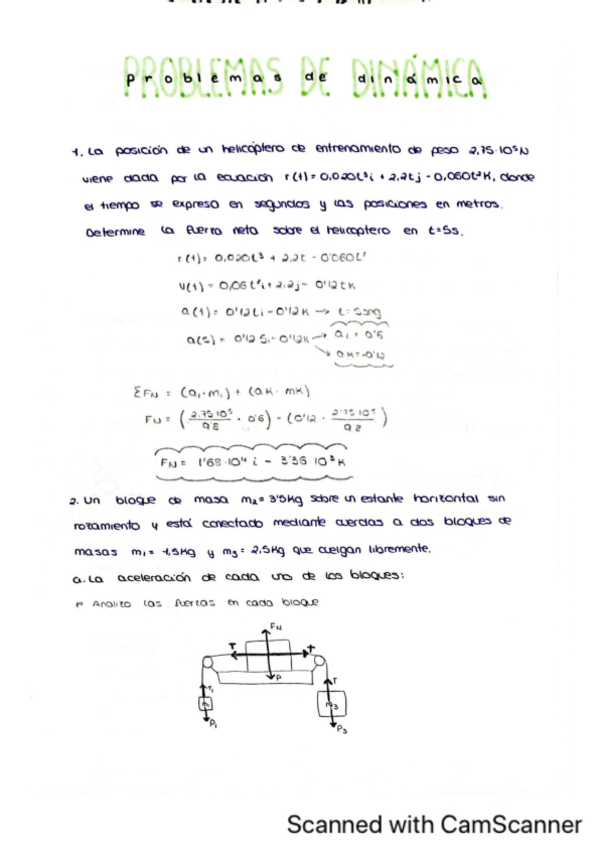 PROBLEMAS DE DINÁMICA
problemas de dinámica
1. La posición de un helicóptero de entrenamiento de peso 2,75·10⁵N
viene dada por la ecuación r(t)=0,020t³i + 2,2tj - 0,060t²K, donde
el tiempo se expresa en segundos y las posiciones en metros.
Determine la fuerza neta sobre el helicoptero en t=5s.
r(t)= 0,020t³ + 2,2t - 0'060t²
v(t) = 0,06t²i + 2,2j - 0'12tK
a(t)= 0'12ti - 0'12K → t=5sng
a(5) = 0'12 5i - 0'12K → ai = 0'6
aK = -0'12
ΣFN = (ai·mi) + (aK·mK)
FN = (2,75·10⁵/9'8 · 0'6) - (0'12 · 2'75·10⁵/9'8)
FN = 1'68·10⁴ i - 3'36·10³ K
2. Un bloque de masa m₂= 3'5Kg sobre un estante horizontal sin
rozamiento y está conectado mediante cuerdas a dos bloques de
masas m₁= 1,5Kg y m₃= 2,5Kg que cuelgan libremente.
a. La aceleración de cada uno de los bloques:
Analizo las fuerzas en cada bloque
FN
T T
P
T₁ T
m₃
P₁ P₃
Scanned with CamScanner